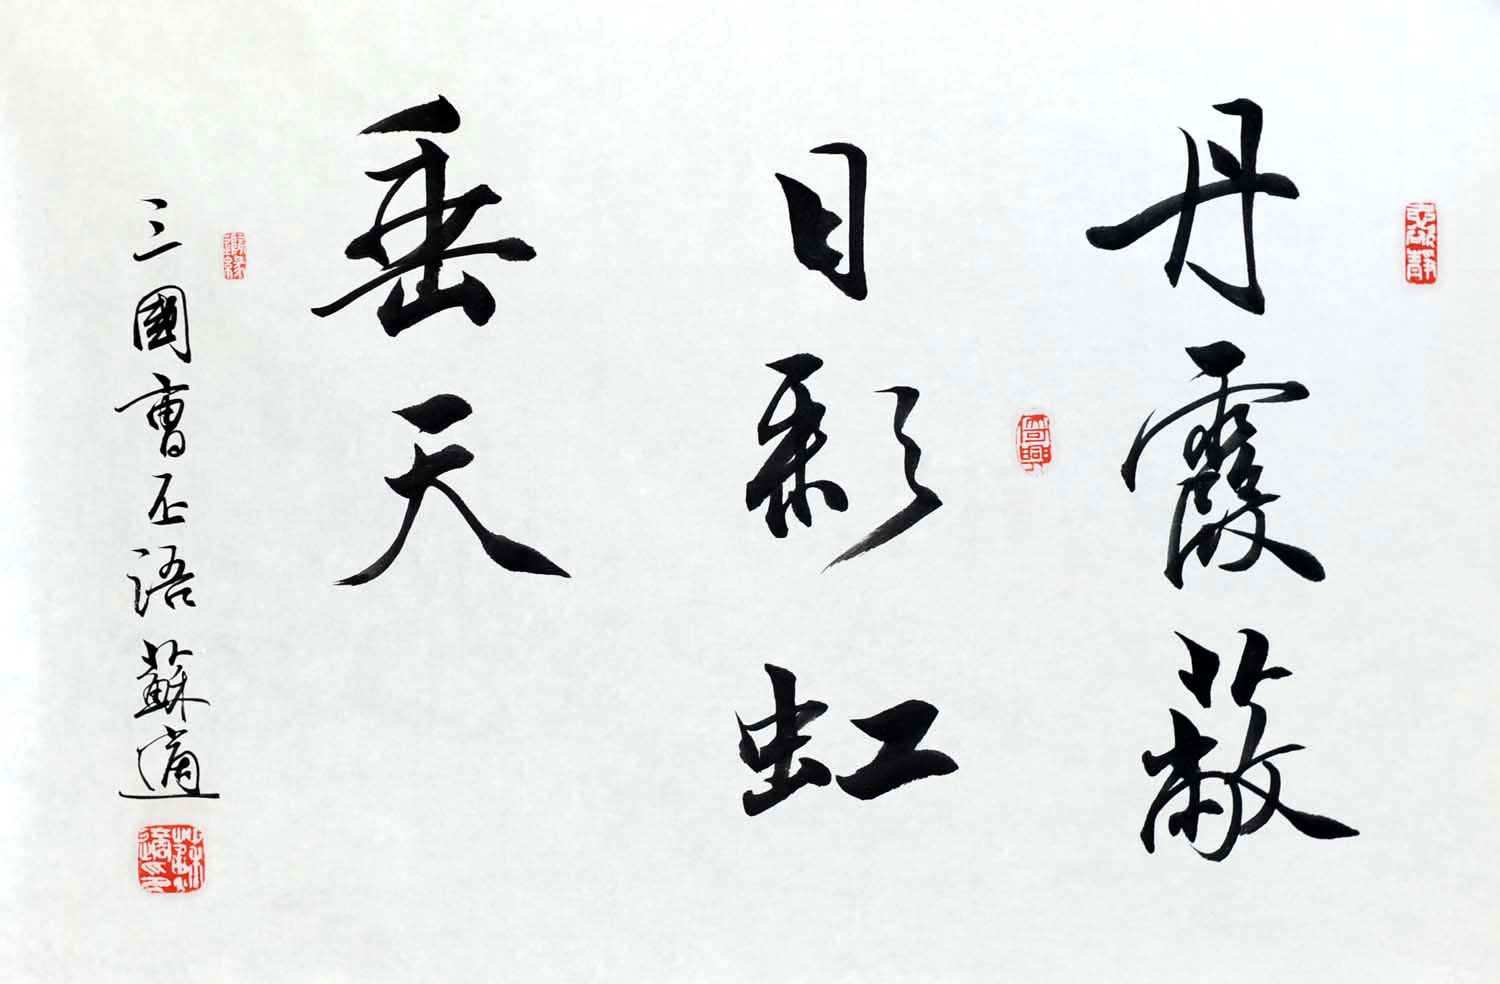 丹霞蔽
日彩虹
垂天
三國曹丕語 蘇適